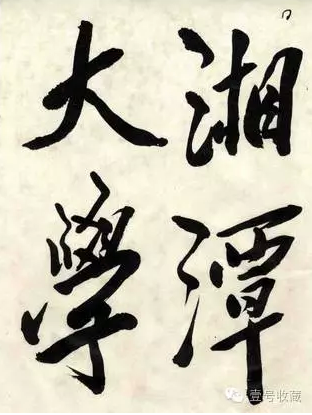 湘潭
大學
壹号收藏